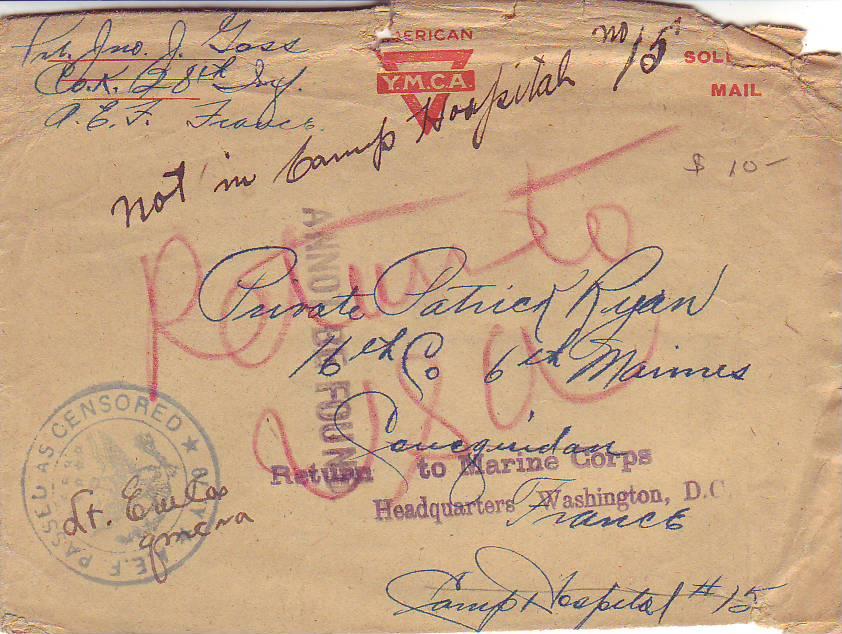 Pvt. Jno. J. Goss
Co. K. 28th Inf.
A. E. F. France.
AMERICAN
Y.M.C.A.
SOL
MAIL
$ 10-
Not in Camp Hospital no 15
Return to
USA
ANNOT BE FOUND
Private Patrick Ryan
16th Co 6th Marines
France
Camp Hospital #15
Return to Marine Corps
Headquarters Washington, D.C.
A.E.F. PASSED AS CENSORED
Lt.